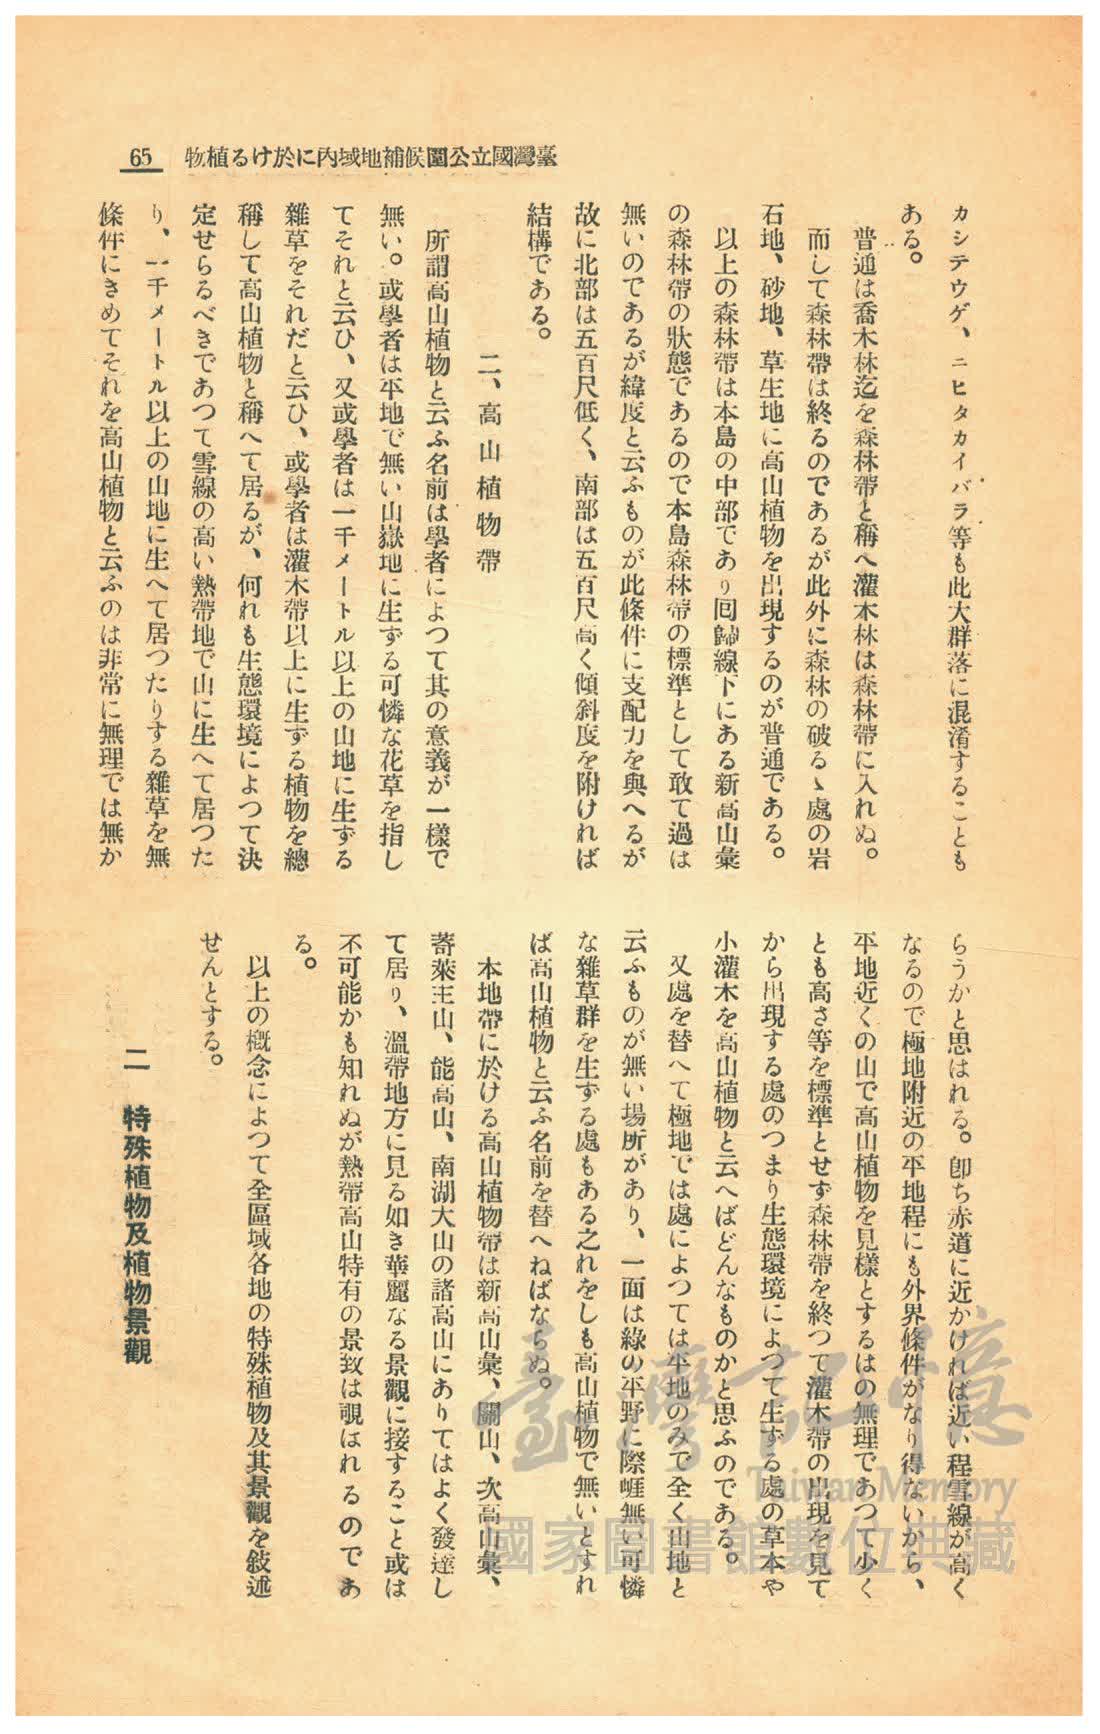 臺灣國立公園候補地域內に於ける植物
65
カシテウゲ、ニヒタカイバラ等も此大群落に混淆することも
ある。
普通は喬木林迄を森林帶と稱へ灌木林は森林帶に入れぬ。
而して森林帶は終るのであるが此外に森林の破るゝ處の岩
石地、砂地、草生地に高山植物を出現するのが普通である。
以上の森林帶は本島の中部であり囘歸線下にある新高山彙
の森林帶の狀態であるので本島森林帶の標準として敢て過は
無いのであるが緯度と云ふものが此條件に支配力を與へるが
故に北部は五百尺低く、南部は五百尺高く傾斜度を附ければ
結構である。
二、高山植物帶
所謂高山植物と云ふ名前は學者によつて其の意義が一樣で
無い。或學者は平地で無い山嶽地に生ずる可憐な花草を指し
てそれと云ひ、又或學者は一千メートル以上の山地に生ずる
雜草をそれだと云ひ、或學者は灌木帶以上に生ずる植物を總
稱して高山植物と稱へて居るが、何れも生態環境によつて決
定せらるべきであつて雪線の高い熱帶地で山に生へて居つた
り、一千メートル以上の山地に生へて居つたりする雜草を無
條件にきめてそれを高山植物と云ふのは非常に無理では無か
らうかと思はれる。卽ち赤道に近かければ近い程雪線が高く
なるので極地附近の平地程にも外界條件がなり得ないから、
平地近くの山で高山植物を見樣とするはの無理であつて少く
とも高さ等を標準とせず森林帶を終つて灌木帶の出現を見て
から出現する處のつまり生態環境によつて生ずる處の草本や
小灌木を高山植物と云へばどんなものかと思ふのである。
又處を替へて極地では處によつては平地のみで全く山地と
云ふものが無い場所があり、一面は綠の平野に際崕無い可憐
な雜草群を生ずる處もある之れをしも高山植物で無いとすれ
ば高山植物と云ふ名前を替へねばならぬ。
本地帶に於ける高山植物帶は新高山彙、關山、次高山彙、
蒈萊主山、能高山、南湖大山の諸高山にありてはよく發達し
て居り、溫帶地方に見る如き華麗なる景觀に接すること或は
不可能かも知れぬが熱帶高山特有の景致は覗はれるのであ
る。
以上の槪念によつて全區域各地の特殊植物及其景觀を敍述
せんとする。
二　特殊植物及植物景觀
臺灣記憶
Taiwan Memory
國家圖書館數位典藏